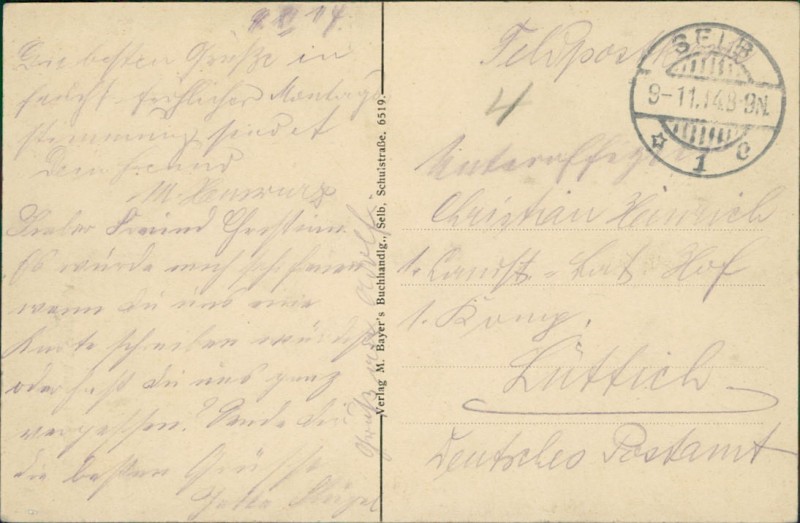 9. XI. 14.
Die besten Grüße in
feucht fröhlicher Montags
stimmung sendet
Dein Freund
M.
Lieber Freund Christian.
Es würde mich sehr freuen
wenn du uns eine
Karte schreiben würdest
oder hast du uns ganz
vergessen? Sende dir
die besten Grüsse
Verlag M. Bayer's Buchhandlg., Selb, Schulstraße. 6519.
Feldpost
4
SELB
9-11.14.8-9N.
1 c
Unteroffizier
Christian Heinrich
1. Landst. Bat Hof
1. Komp.
Lüttich
Deutsches Postamt